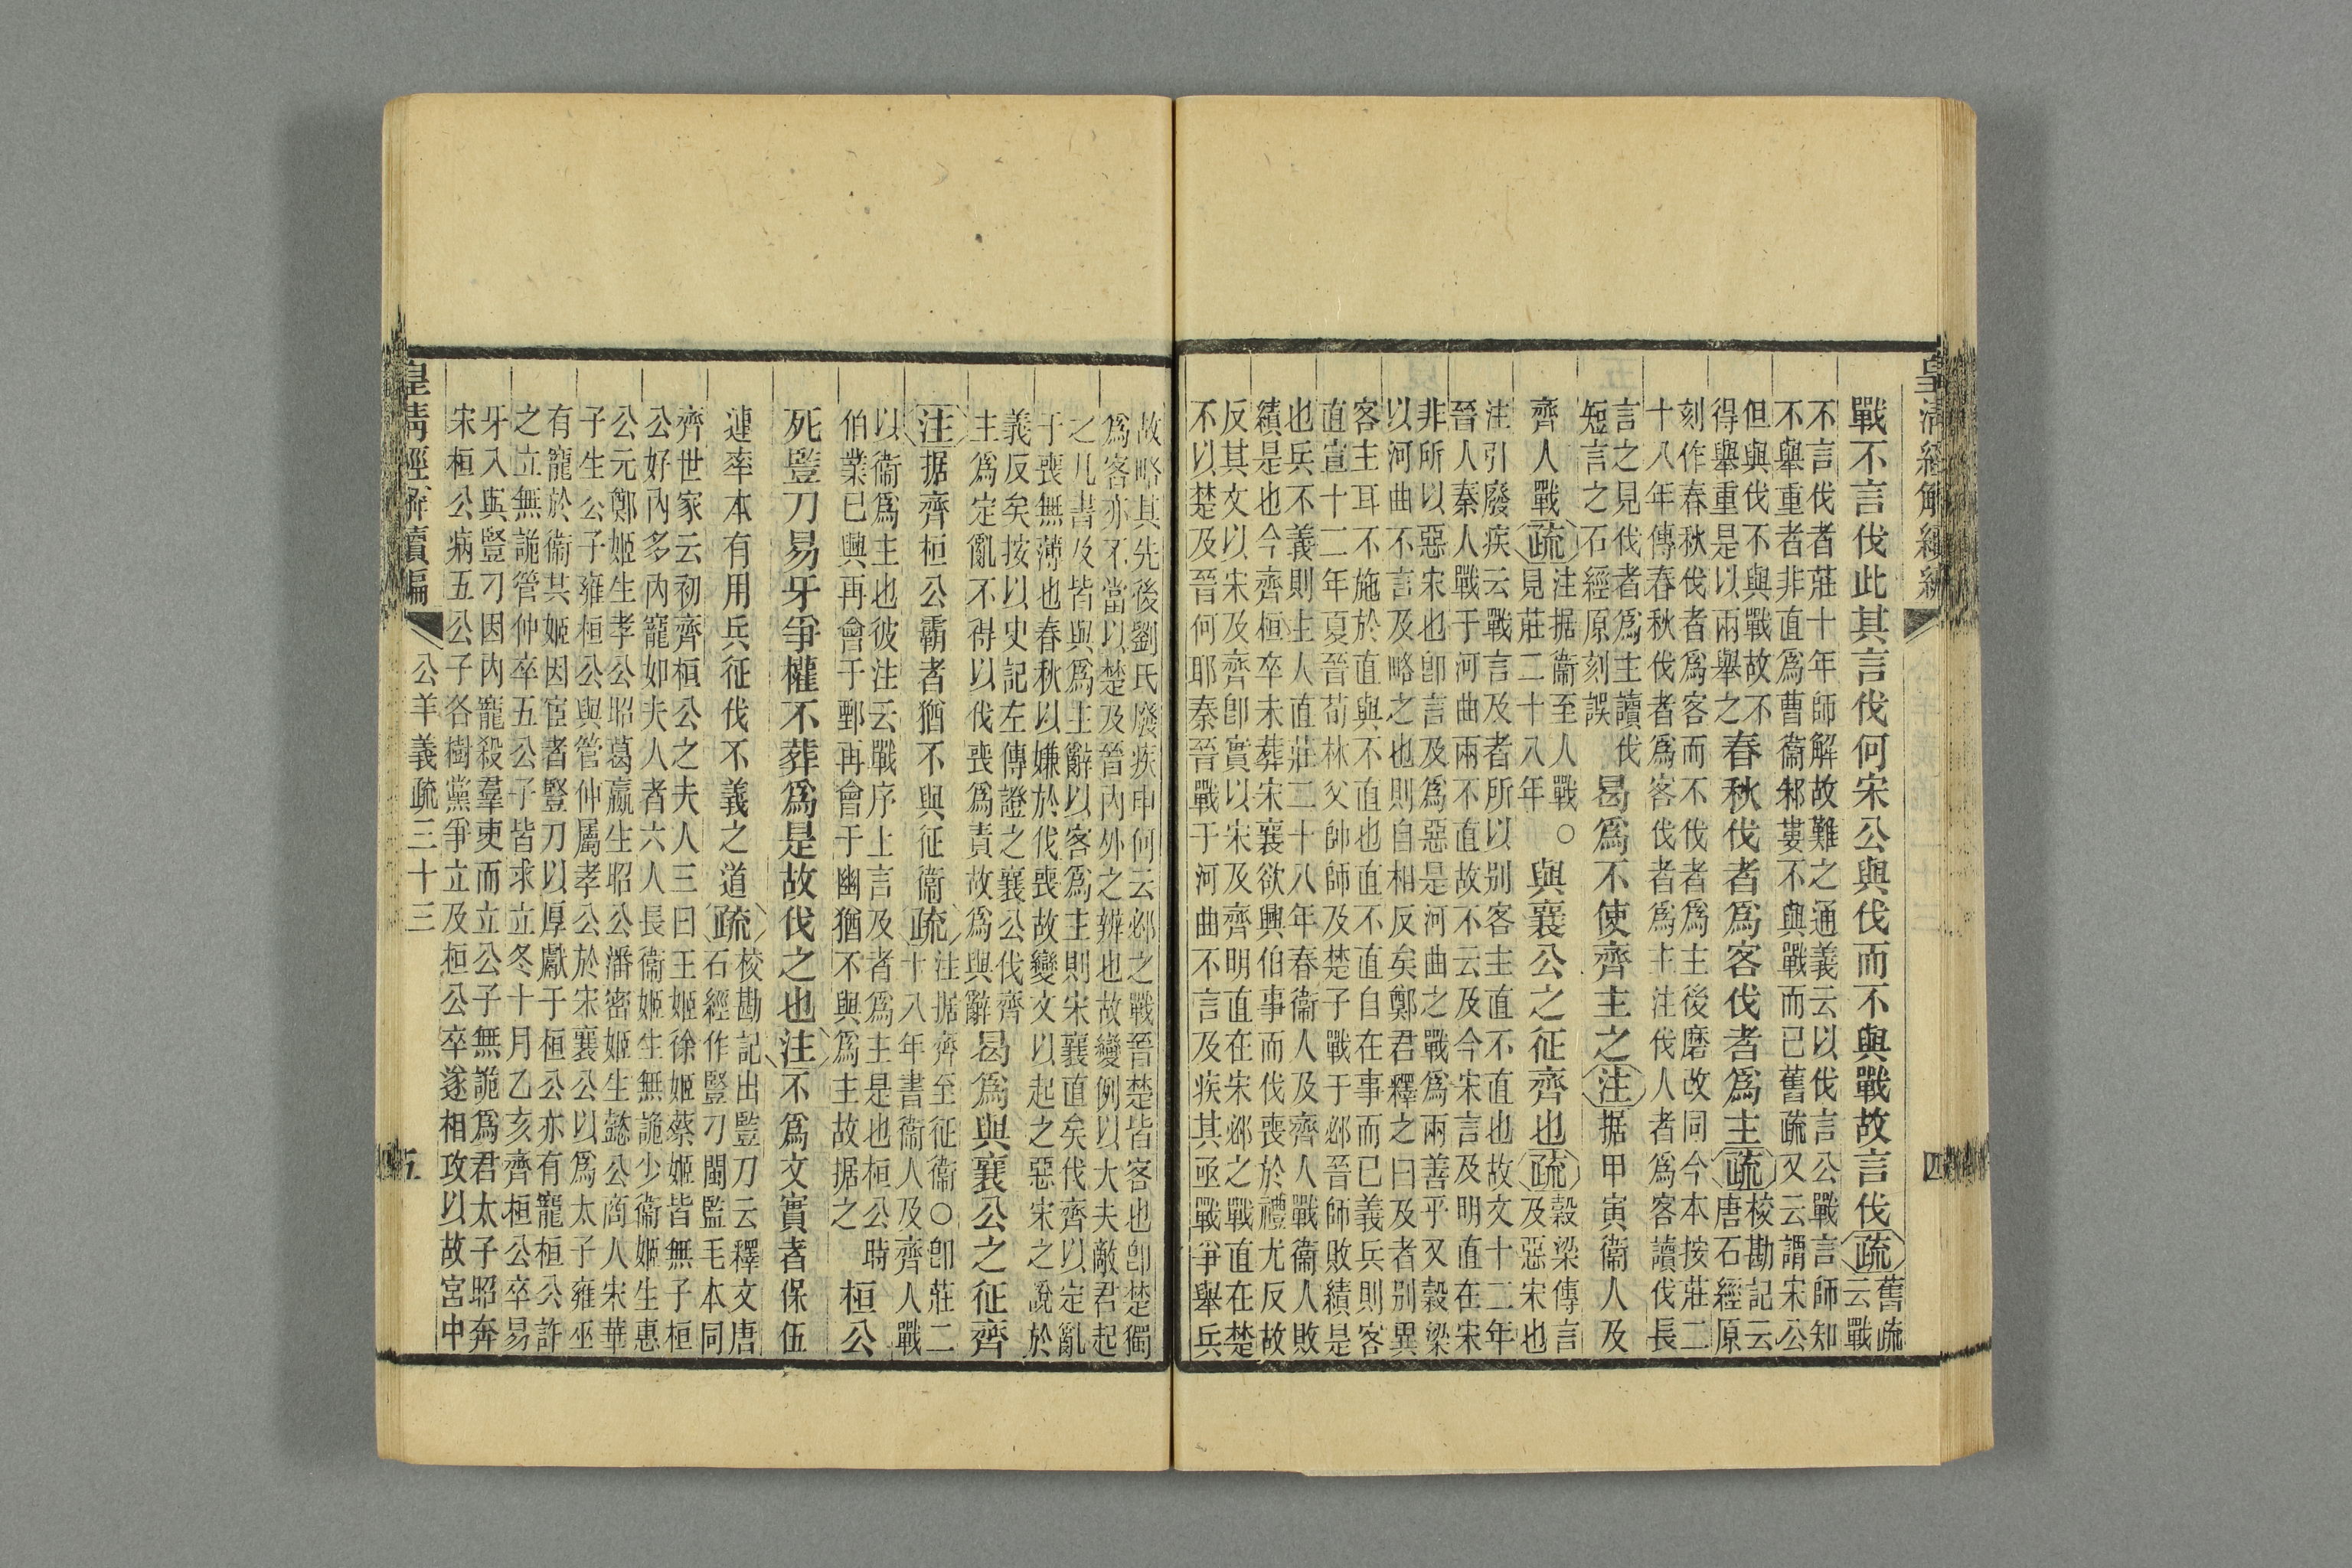 皇清經解續編
四
戰不言伐此其言伐何宋公與伐而不與戰故言伐疏舊疏
云戰
不言伐者莊十年師解故難之通義云以伐言公戰言師知
不舉重者非直爲曹衞邾婁不與戰而已舊疏又云謂宋公
但與伐不與戰故不
得舉重是以兩舉之春秋伐者爲客伐者爲主疏校勘記云
唐石經原
刻作春秋伐者爲客而不伐者爲主後磨改同今本按莊二
十八年傳春秋伐者爲客伐者爲主注伐人者爲客讀伐長
言之見伐者爲主讀伐
短言之石經原刻誤曷爲不使齊主之注据甲寅衞人及
齊人戰疏注据衞至人戰○
見莊二十八年與襄公之征齊也疏穀梁傳言
及惡宋也
注引廢疾云戰言及者所以別客主直不直也故文十二年
晉人秦人戰于河曲兩不直故不云及今宋言及明直在宋
非所以惡宋也卽言及爲惡是河曲之戰爲兩善乎又穀梁
以河曲不言及略之也則自相反矣鄭君釋之曰及者別異
客主耳不施於直與不直也直不直自在事而已義兵則客
直宣十二年夏晉荀林父帥師及楚子戰于邲晉師敗績是
也兵不義則主人直莊二十八年春衞人及齊人戰衞人敗
績是也今齊桓卒未葬宋襄欲興伯事而伐喪於禮尤反故
反其文以宋及齊卽實以宋及齊明直在宋邲之戰直在楚
不以楚及晉何耶秦晉戰于河曲不言及疾其亟戰爭舉兵
故略其先後劉氏廢疾申何云邲之戰晉楚皆客也卽楚獨
爲客亦不當以楚及晉內外之辨也故變例以大夫敵君起
之凡書及皆與爲主辭以客爲主則宋襄直矣伐齊以定亂
于喪無薄也春秋以嫌於伐喪故變文以起之惡宋之說於
義反矣按以史記左傳證之襄公伐齊
主爲定亂不得以伐喪爲責故爲與辭曷爲與襄公之征齊
注据齊桓公霸者猶不與征衞疏注据齊至征衞○卽莊二
十八年書衞人及齊人戰
以衞爲主也彼注云戰序上言及者爲主是也桓公時
伯業已興再會于鄄再會于幽猶不與爲主故据之桓公
死豎刀易牙爭權不葬爲是故伐之也注不爲文實者保伍
連率本有用兵征伐不義之道疏校勘記出豎刀云釋文唐
石經作豎刁閩監毛本同
齊世家云初齊桓公之夫人三曰王姬徐姬蔡姬皆無子桓
公好內多內寵如夫人者六人長衞姬生無詭少衞姬生惠
公元鄭姬生孝公昭葛嬴生昭公潘密姬生懿公商人宋華
子生公子雍桓公與管仲屬孝公於宋襄公以爲太子雍巫
有寵於衞共姬因宦者豎刀以厚獻于桓公亦有寵桓公許
之立無詭管仲卒五公子皆求立冬十月乙亥齊桓公卒易
牙入與豎刁因內寵殺羣吏而立公子無詭爲君太子昭奔
宋桓公病五公子各樹黨爭立及桓公卒遂相攻以故宮中
皇清經解續編
公羊義疏三十三
五